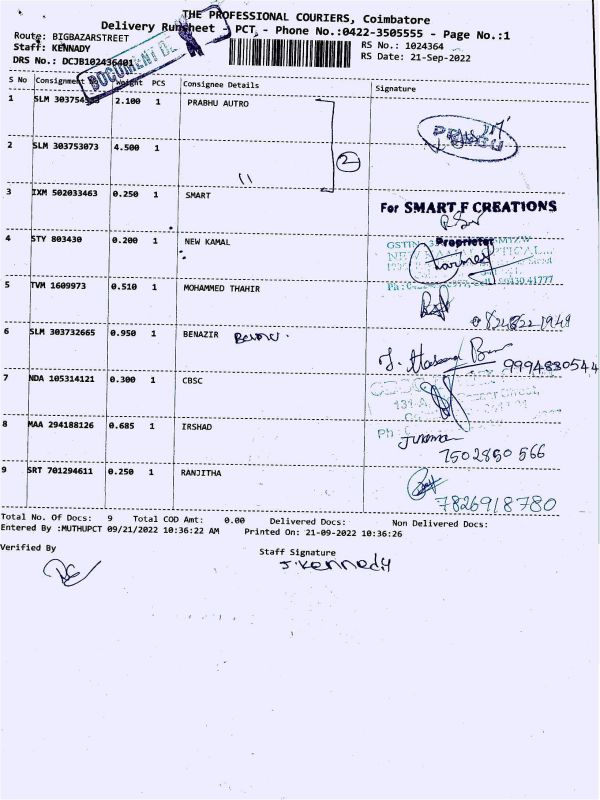 THE PROFESSIONAL COURIERS, Coimbatore
Delivery Runsheet - PCT, - Phone No.:0422-3505555 - Page No.:1
Route: BIGBAZARSTREET
Staff: KENNADY
DRS No.: DCJB102436401
RS No.: 1024364
RS Date: 21-Sep-2022
DOCUMENT
S No Consignment Weight PCS Consignee Details Signature
1 SLM 2.100 1 PRABHU AUTRO
2 SLM 303753073 4.500 1
2
3 IXM 502033463 0.250 1 SMART
For SMART F CREATIONS
4 STY 803430 0.200 1 NEW KAMAL
Proprietor
5 TVM 1609973 0.510 1 MOHAMMED THAHIR
6 SLM 303732665 0.950 1 BENAZIR
9994880544
7 NDA 105314121 0.300 1 CBSC
8 MAA 294188126 0.685 1 IRSHAD
7502850566
9 SRT 701294611 0.250 1 RANJITHA
7826918780
Total No. Of Docs: 9 Total COD Amt: 0.00 Delivered Docs: Non Delivered Docs:
Entered By :MUTHUPCT 09/21/2022 10:36:22 AM Printed On: 21-09-2022 10:36:26
Verified By
Staff Signature
J.Kennedy